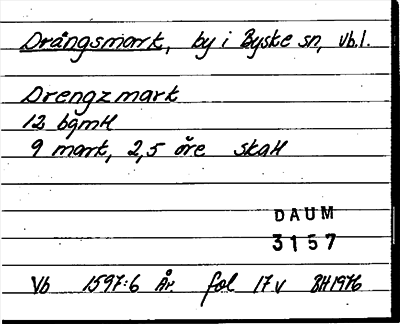 Drångsmark, by i Byske sn, Vb.l.
Drengzmark
12 bgmH
9 mark, 2,5 öre skatt
DAUM
3157
Vb 1597:6 År. fol 17v BH1976